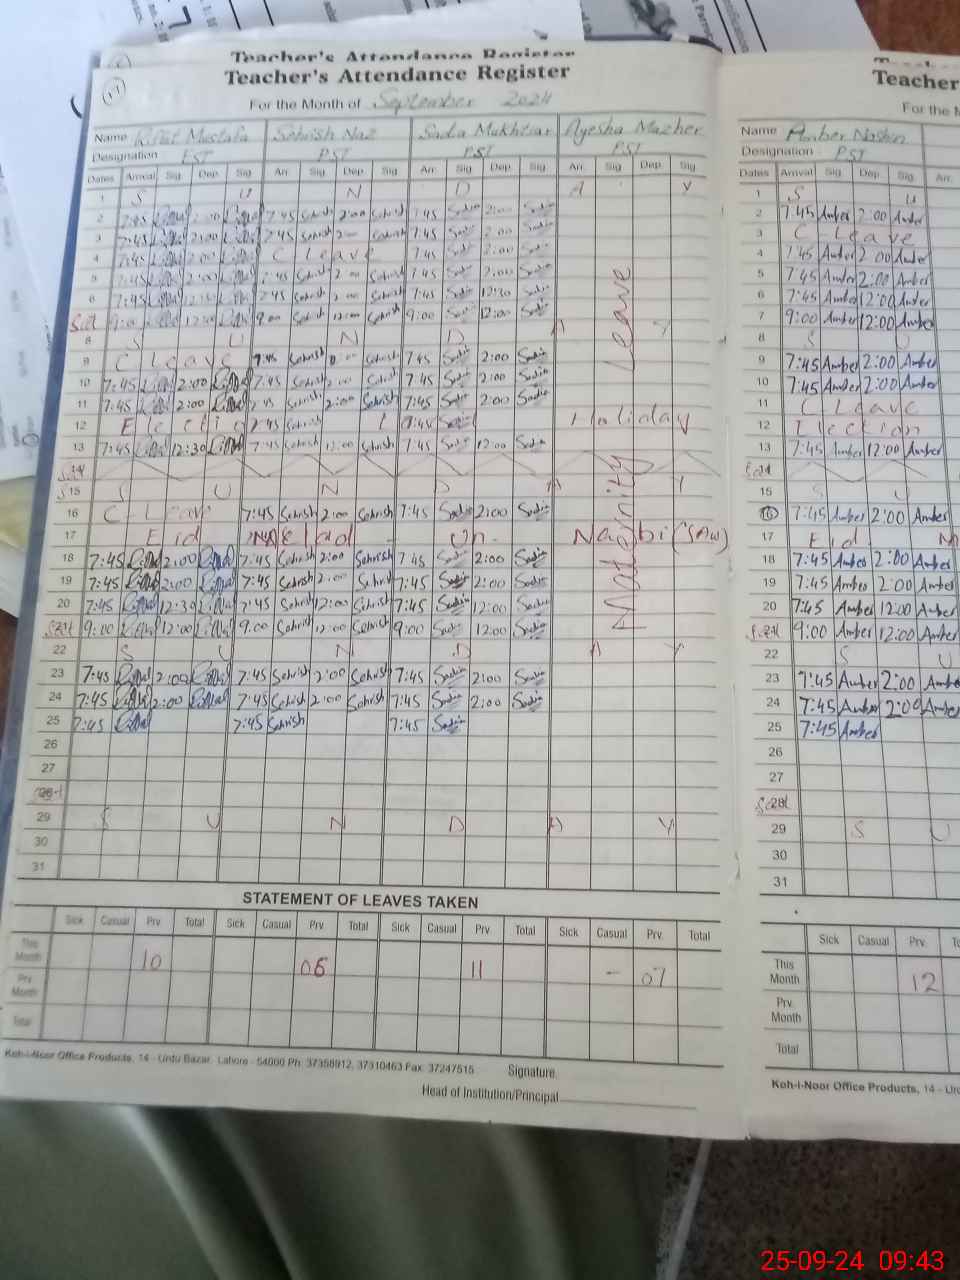 Teacher's Attendance Register
Teacher's Attendance Register Teacher
17
For the Month of September 2024 For the
Name Riffat Mustafa Sehrish Naz Sadia Mukhtiar Ayesha Mazher Name Amber Nashin
Designation EST PST PST PST Designation PST
Dates Arrival Sig. Dep. Sig. Arr. Sig. Dep. Sig. Arr. Sig. Dep. Sig. Arr. Sig. Dep. Sig. Dates Arrival Sig. Dep. Sig. Arr.
1 S U N D A Y 1 S U
2 7:45 2:00 7:45 Sehrish 2:00 Sehrish 7:45 Sadia 2:00 Sadia 2 7:45 Amber 2:00 Amber
3 7:45 2:00 7:45 Sehrish 2:00 Sehrish 7:45 Sadia 2:00 Sadia 3 C Leave
4 7:45 2:00 C Leave 7:45 Sadia 2:00 Sadia 4 7:45 Amber 2:00 Amber
5 7:45 2:00 7:45 Sehrish 2:00 Sehrish 7:45 Sadia 2:00 Sadia 5 7:45 Amber 2:00 Amber
6 7:45 12:30 7:45 Sehrish 2:00 Sehrish 7:45 Sadia 12:30 Sadia 6 7:45 Amber 12:00 Amber
Sat 9:00 12:00 9:00 Sehrish 12:00 Sehrish 9:00 Sadia 12:00 Sadia 7 9:00 Amber 12:00 Amber
8 S U N D A Y 8 S U
9 C Leave 7:45 Sehrish Sehrish 7:45 Sadia 2:00 Sadia 9 7:45 Amber 2:00 Amber
10 7:45 2:00 7:45 Sehrish 2:00 Sehrish 7:45 Sadia 2:00 Sadia 10 7:45 Amber 2:00 Amber
11 7:45 2:00 7:45 Sehrish 2:00 Sehrish 7:45 Sadia 2:00 Sadia 11 C Leave
12 7:45 Sehrish 7:45 Sadia Holiday 12 Election
13 7:45 12:30 7:45 Sehrish 12:00 Sehrish 7:45 Sadia 12:00 Sadia 13 7:45 Amber 12:00 Amber
Sat
15 S U N D A Y 15 S U
16 C-Leave 7:45 Sehrish 2:00 Sehrish 7:45 Sadia 2:00 Sadia 16 7:45 Amber 2:00 Amber
17 Eid Melad - Un - Nabi (SAW) 17 Eid M
18 7:45 2:00 7:45 Sehrish 2:00 Sehrish 7:45 Sadia 2:00 Sadia 18 7:45 Amber 2:00 Amber
19 7:45 2:00 7:45 Sehrish 2:00 Sehrish 7:45 Sadia 2:00 Sadia 19 7:45 Amber 2:00 Amber
20 7:45 12:30 7:45 Sehrish 12:00 Sehrish 7:45 Sadia 12:00 Sadia 20 7:45 Amber 12:00 Amber
Sat 9:00 12:00 9:00 Sehrish 12:00 Sehrish 9:00 Sadia 12:00 Sadia Sat 9:00 Amber 12:00 Amber
22 S U N D A Y 22 S U
23 7:45 2:00 7:45 Sehrish 2:00 Sehrish 7:45 Sadia 2:00 Sadia 23 7:45 Amber 2:00 Amber
24 7:45 2:00 7:45 Sehrish 2:00 Sehrish 7:45 Sadia 2:00 Sadia 24 7:45 Amber 2:00 Amber
25 7:45 7:45 Sehrish 7:45 Sadia 25 7:45 Amber
Maternity Leave
26 26
27 27
Sat 28 Sat 28
29 S U N D A Y 29 S U
30 30
31 31
STATEMENT OF LEAVES TAKEN
Sick Casual Prv. Total Sick Casual Prv. Total Sick Casual Prv. Total Sick Casual Prv. Total Sick Casual Prv.
This Month 10 06 11 - 07 This Month 12
Prv. Month Prv. Month
Total Total
Koh-i-Noor Office Products, 14 - Urdu Bazar, Lahore - 54000 Ph: 37358912, 37310463 Fax: 37247515 Signature. Koh-i-Noor Office Products, 14 - Urd
Head of Institution/Principal
25-09-24 09:43